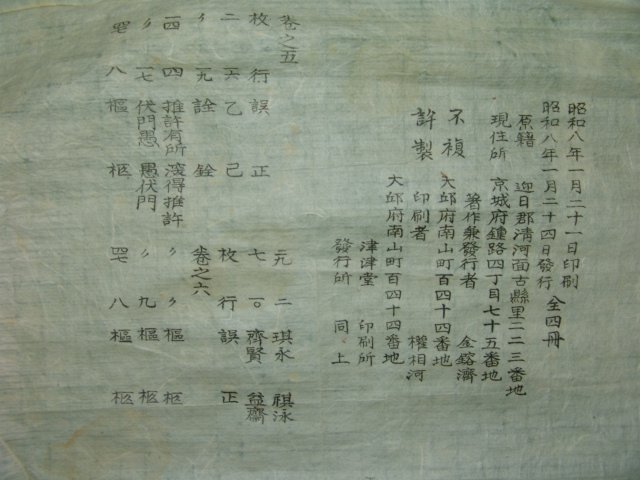 昭和八年一月二十一日印刷
昭和八年一月二十四日發行 全四冊
原籍 迎日郡淸河面古縣里二二三番地
現住所 京城府鍾路四丁目七十五番地
著作兼發行者 金鎔濟
不複 大邱府南山町百四十四番地
許製 印刷者 權相河
大邱府南山町百四十四番地
津津堂 印刷所
發行所 同上
卷之五
枚 行 誤 正
二 一六 乙 己
〃 一九 詮 銓
一四 四 推許有所 深得推許
〃 一七 伏門愚 愚伏門
八 樞 柩
元 二 琪永 祺泳
七 一〇 齊賢 益齋
枚 行 誤 正
卷之六
〃 〃 樞 柩
〃 九 樞 柩
八 樞 柩